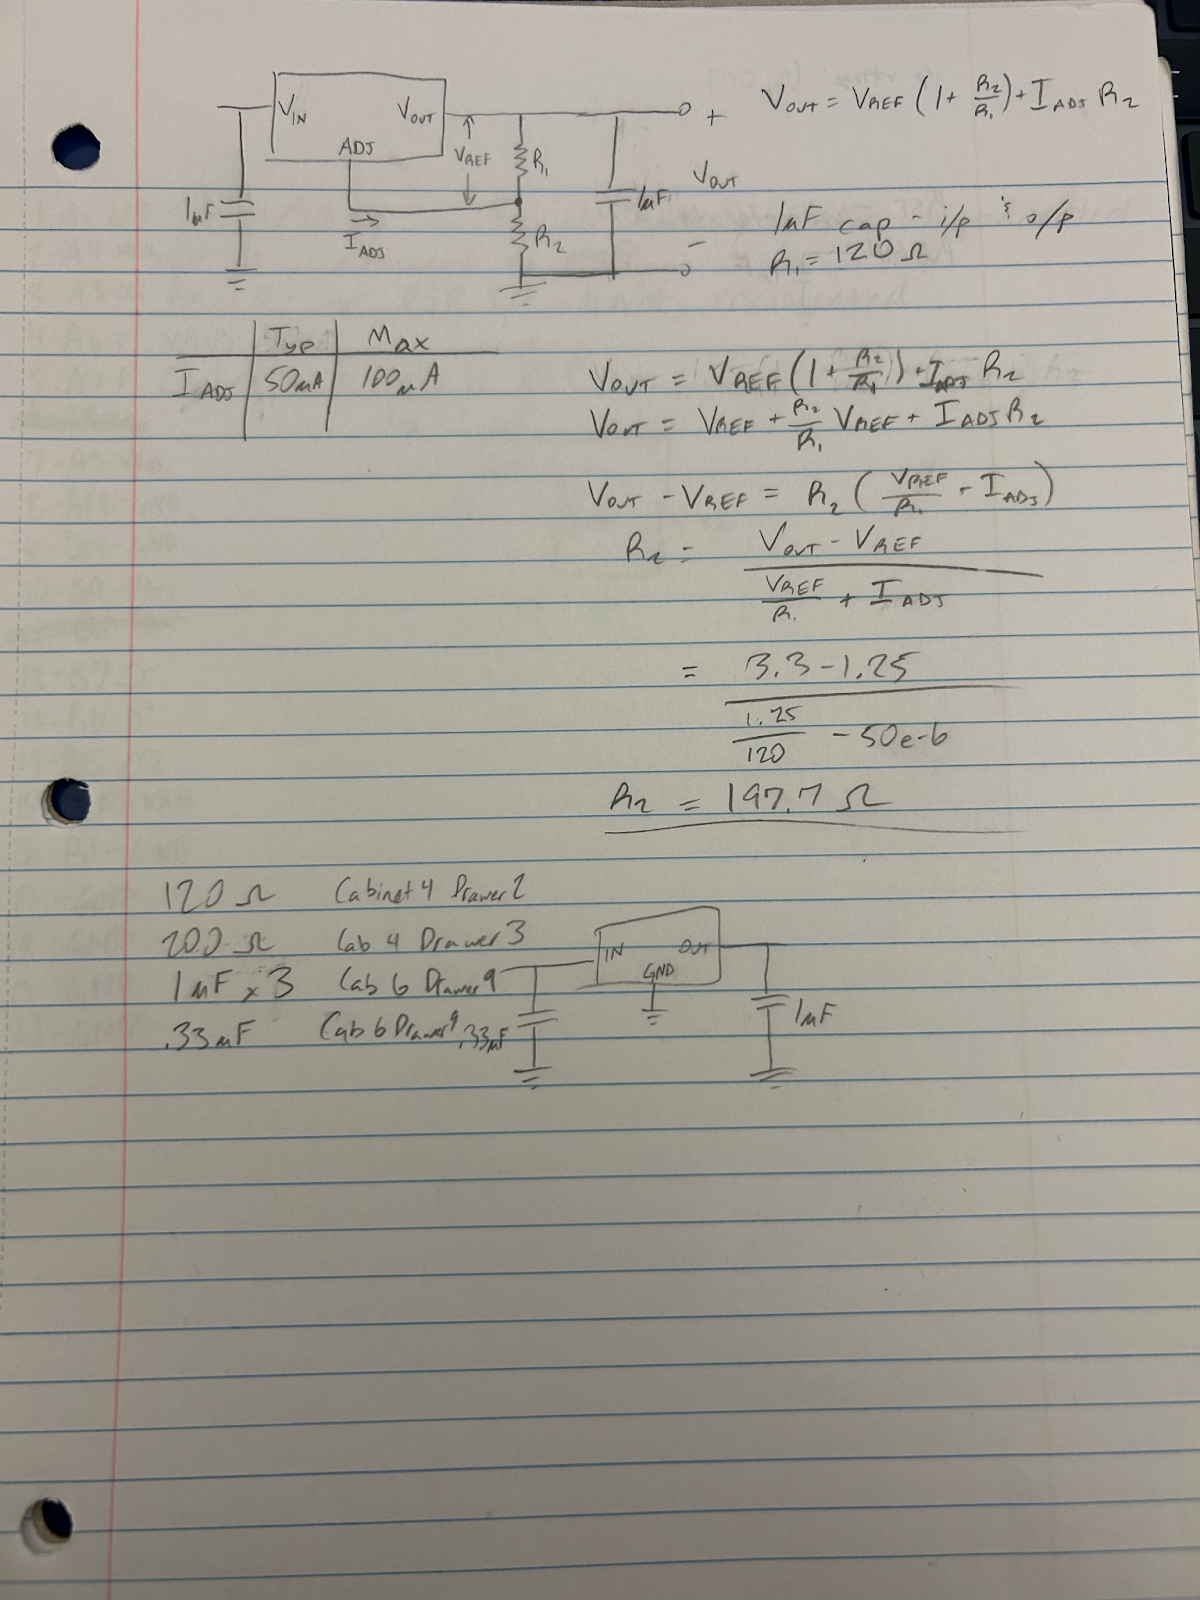 V_IN V_OUT
ADJ
V_REF
R₁
R₂
1μF
1μF
I_ADJ
+
V_OUT
-
V_OUT = V_REF (1 + R₂/R₁) + I_ADJ R₂
1μF cap - i/p & o/p
R₁ = 120 Ω
Typ Max
I_ADJ 50μA 100μA
V_OUT = V_REF (1 + R₂/R₁) + I_ADJ R₂
V_OUT = V_REF + R₂/R₁ V_REF + I_ADJ R₂
V_OUT - V_REF = R₂ (V_REF/R₁ - I_ADJ)
R₂ = (V_OUT - V_REF) / (V_REF/R₁ + I_ADJ)
= (3.3 - 1.25) / (1.25/120 - 50e-6)
R₂ = 197.7 Ω
120 Ω Cabinet 4 Drawer 2
200 Ω Cab 4 Drawer 3
1μF x 3 Cab 6 Drawer 9
.33μF Cab 6 Drawer 9
IN OUT
GND
.33μF
1μF